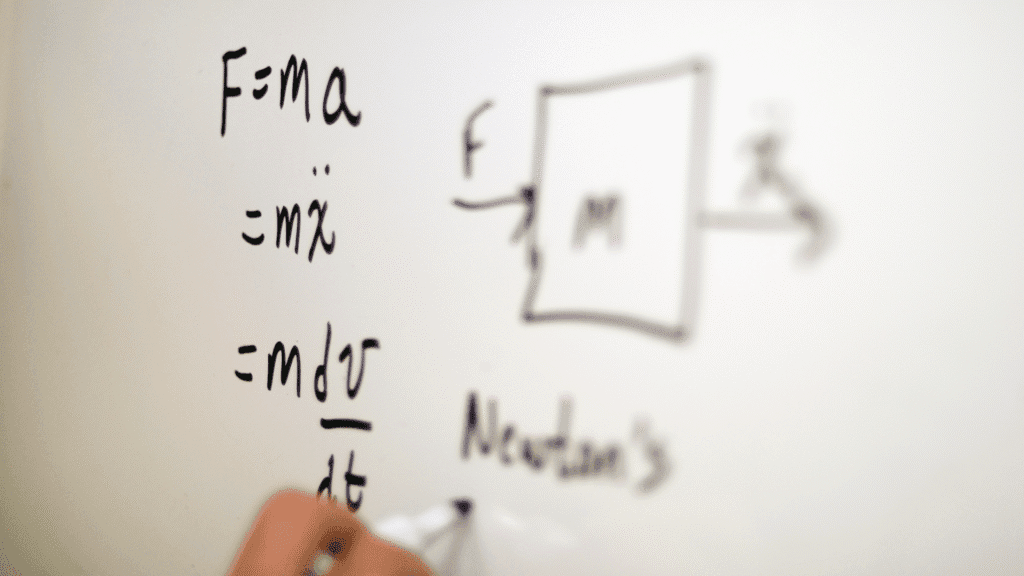 F=ma
=mẍ
=mdv
dt
F
M
ẍ
Newton's